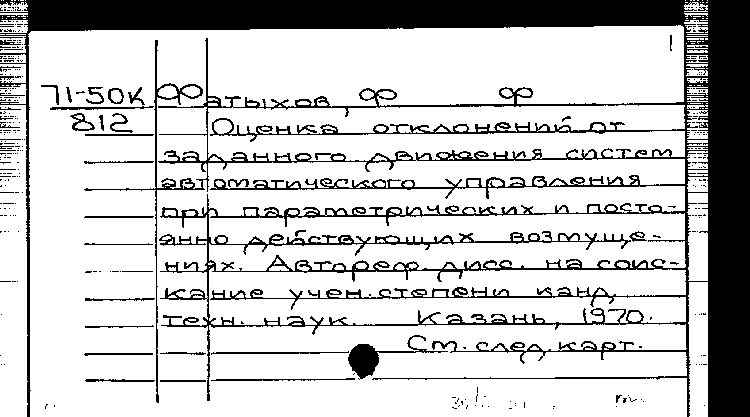 71-50К Фатыхов, Ф Ф
812 Оценка отклонений от
заданного движения систем
автоматического управления
при параметрических и посто-
янно действующих возмуще-
ниях. Автореф. дисс. на соис-
кание учен. степени канд.
техн. наук. Казань, 1970.
См. след. карт.